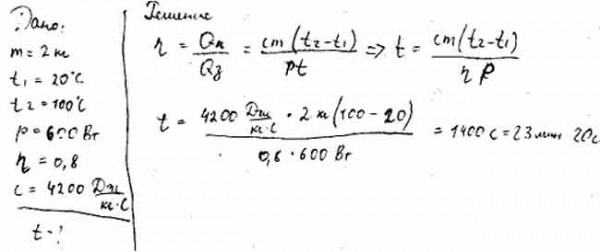 Дано:
m = 2 кг
t₁ = 20°C
t₂ = 100°C
P = 600 Вт
η = 0,8
c = 4200 Дж/кг·C
t - ?
Решение
η = Qп/Qз = cm(t₂-t₁)/Pt => t = cm(t₂-t₁)/ηP
t = 4200 Дж/кг·C · 2 кг (100 - 20)/0,8 · 600 Вт = 1400 с = 23 мин 20 с.